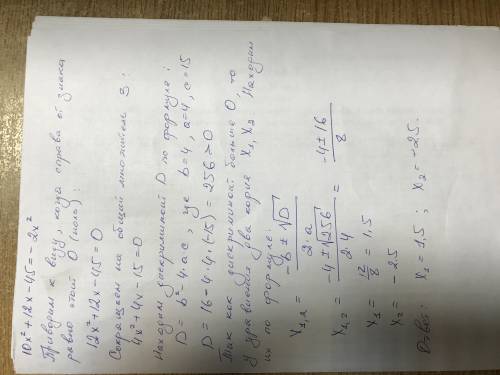 10x² + 12x - 45 = - 2x²
Приводим к виду, когда справа от знака
равно стоит 0 (ноль):
12x² + 12x - 45 = 0
Сокращаем на общий множитель 3:
4x² + 4x - 15 = 0
Находим дискриминант D по формуле:
D = b² - 4·a·c, где b = 4, a = 4, c = 15
D = 16 - 4·4·(-15) = 256 > 0
Так как дискриминант больше 0, то
у уравнения два корня x₁, x₂. Находим
их по формуле:
x₁,₂ = (-b ± √D) / (2·a)
x₁,₂ = (-4 ± √256) / (2·4) = (-4 ± 16) / 8
x₁ = 12/8 = 1,5
x₂ = - 2,5
Ответ: x₁ = 1,5 ; x₂ = - 2,5.